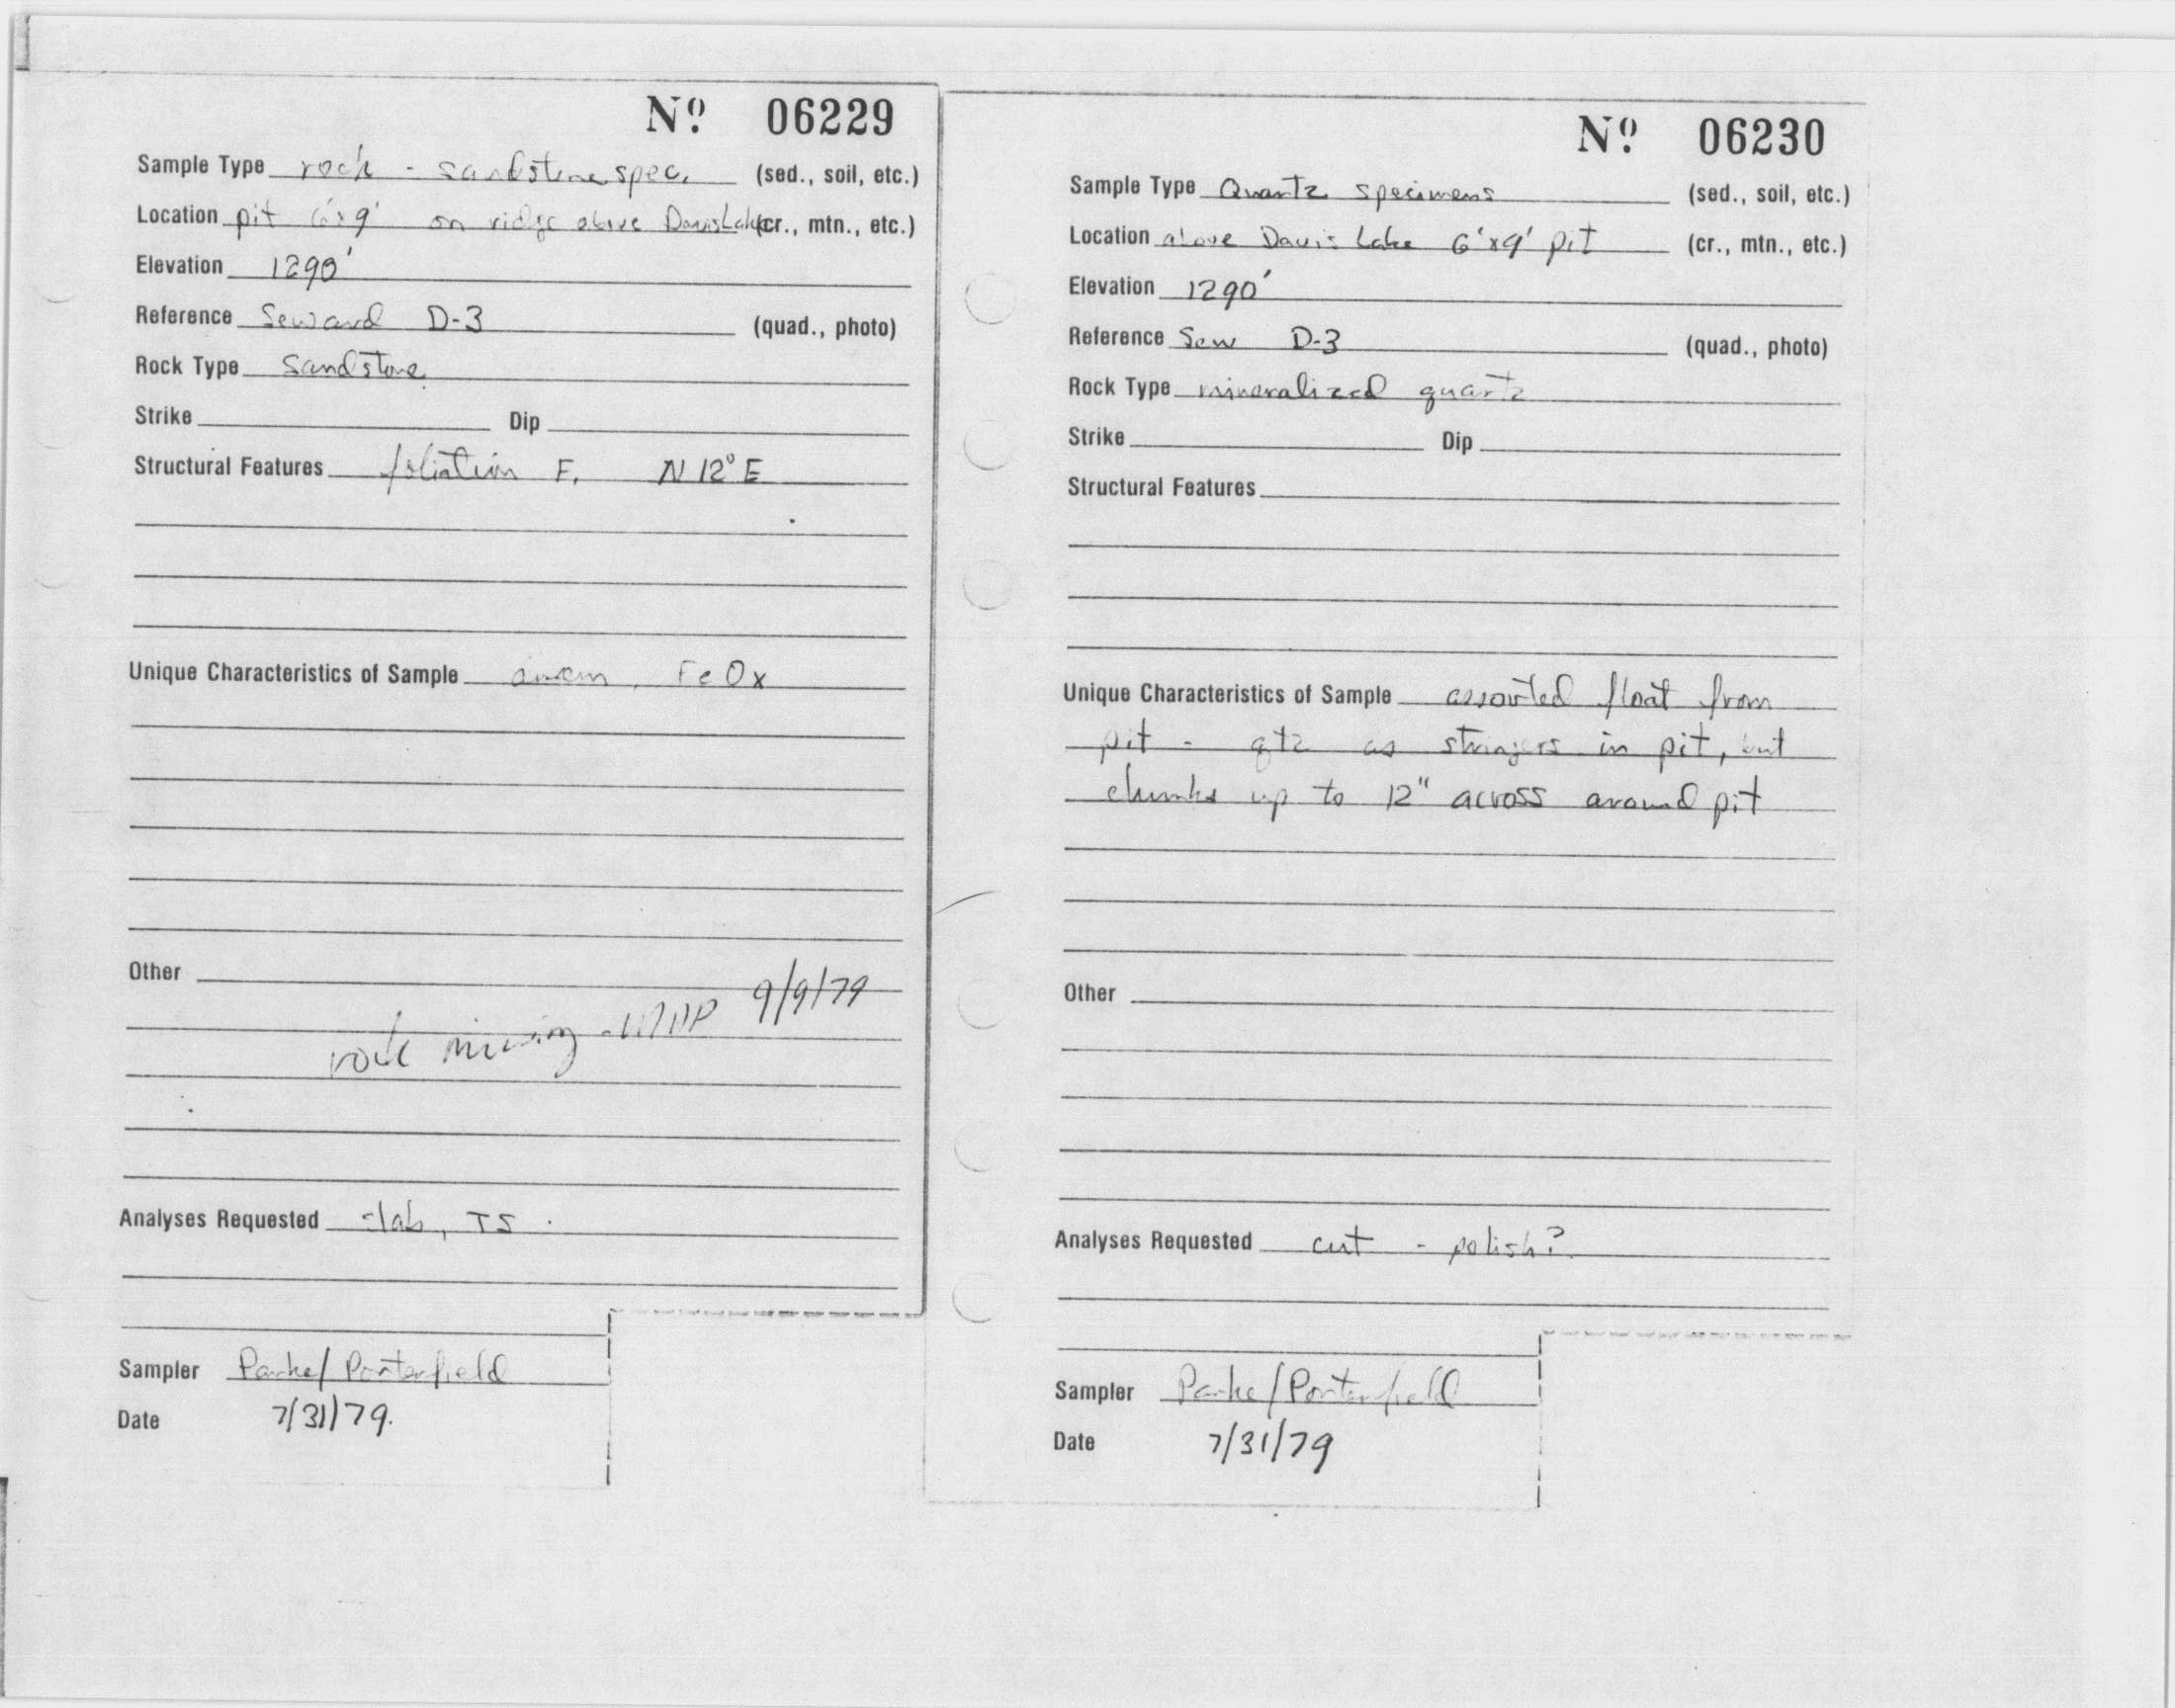 Nº 06229
Sample Type rock - sandstone spec. (sed., soil, etc.)
Location pit 6'x9' on ridge above Davis Lake (cr., mtn., etc.)
Elevation 1290'
Reference Seward D-3 (quad., photo)
Rock Type Sandstone
Strike Dip
Structural Features foliation F, N 12° E
Unique Characteristics of Sample FeOx
Other
rock missing - 9/9/79
Analyses Requested slab, TS.
Sampler Parke/Porterfield
Date 7/31/79.
Nº 06230
Sample Type Quartz specimens (sed., soil, etc.)
Location above Davis Lake 6'x9' pit (cr., mtn., etc.)
Elevation 1290'
Reference Sew D-3 (quad., photo)
Rock Type mineralized quartz
Strike Dip
Structural Features
Unique Characteristics of Sample assorted float from
pit - qtz as stringers in pit, but
chunks up to 12" across around pit
Other
Analyses Requested cut - polish?
Sampler Parke/Porterfield
Date 7/31/79